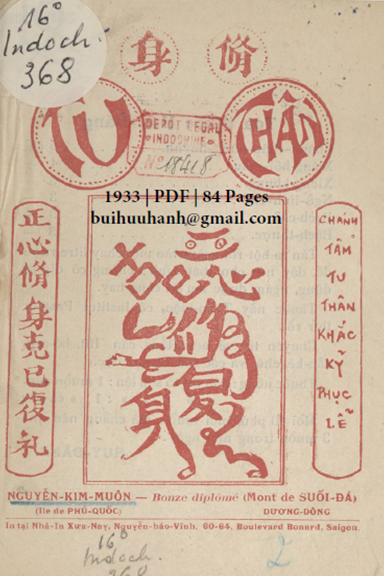 16°
Indoch.
368
身 脩
TU
THÂN
DEPOT LEGAL
INDOCHINE
N° 18418
1933 | PDF | 84 Pages
buihuuhanh@gmail.com
正心脩身克己復礼
CHÁNH
TÂM
TU
THÂN
KHẮC
KỶ
PHỤC
LỄ
NGUYỄN-KIM-MUÔN — Bonze diplômé (Mont de SUỐI-ĐÁ)
(Ile de PHÚ-QUỐC)
DƯƠNG-ĐÔNG
In tại Nhà-In Xưa-Nay, Nguyễn-háo-Vĩnh, 60-64, Boulevard Bonard, Saigon.
16°
Indoch.
368
2